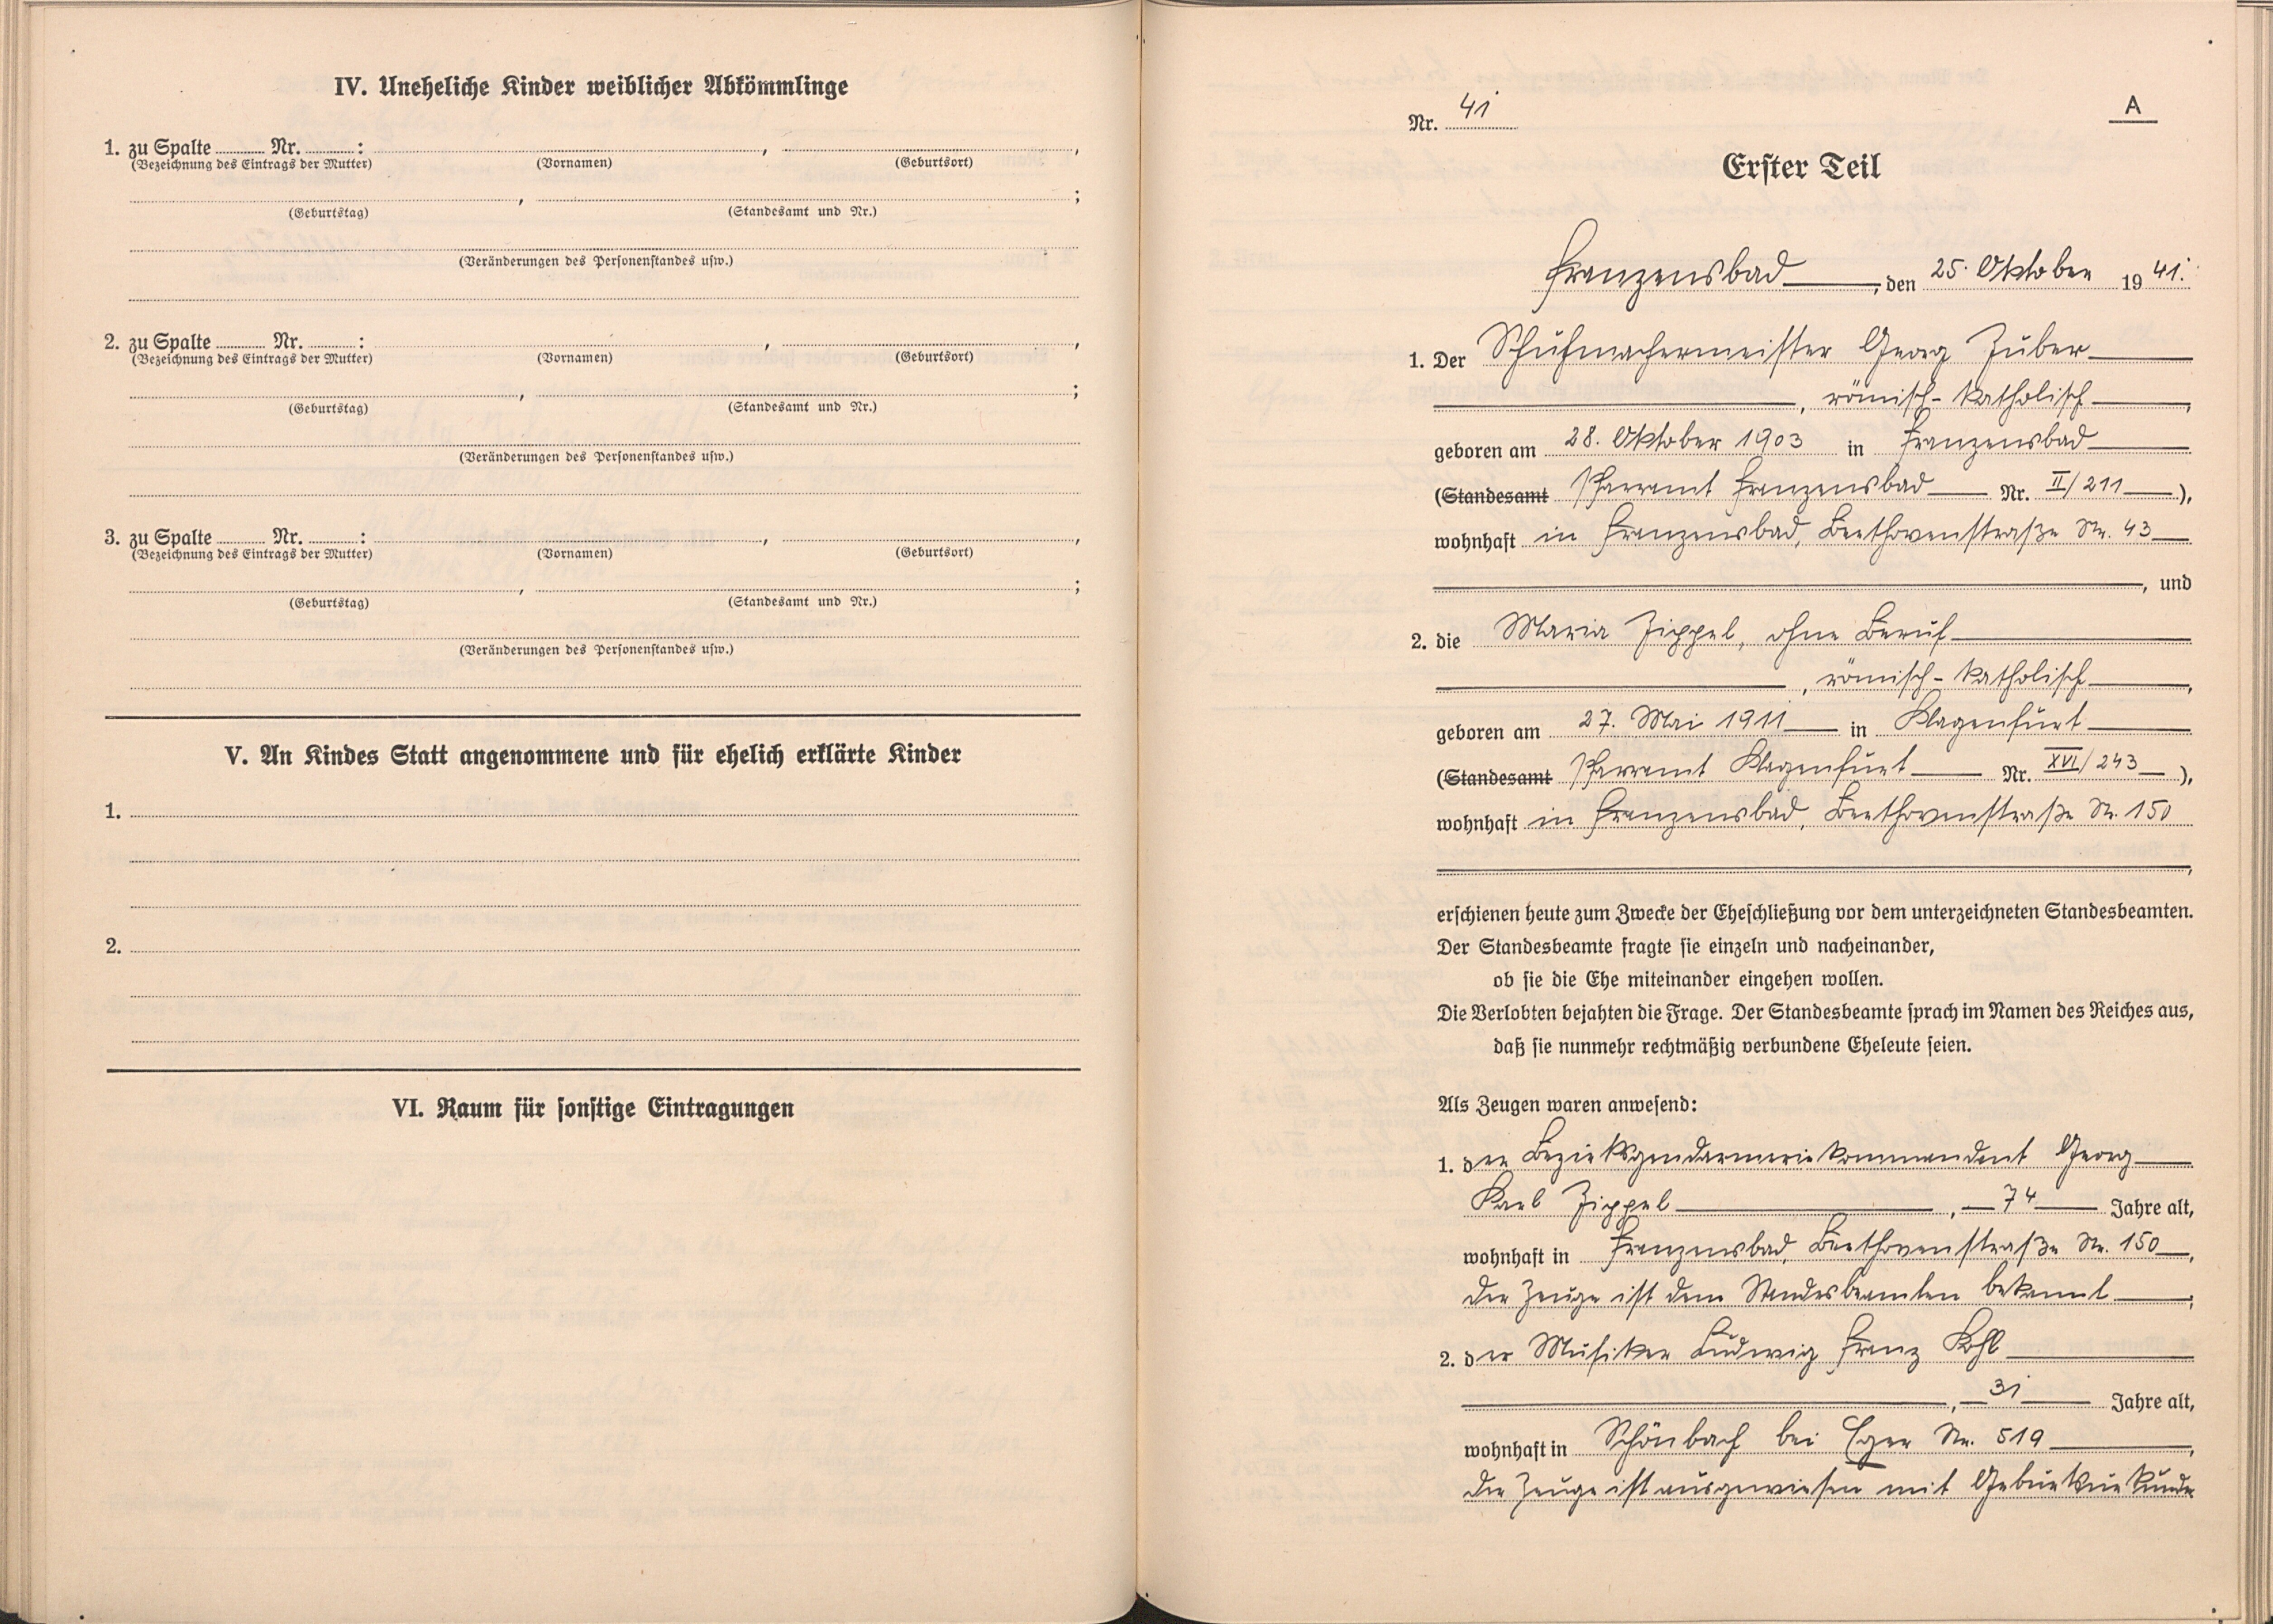 IV. Uneheliche Kinder weiblicher Abkömmlinge
1. zu Spalte ........ Nr. ........ : ........ , ........ ,
(Bezeichnung des Eintrags der Mutter) (Vornamen) (Geburtsort)
........ , ........ ;
(Geburtstag) (Standesamt und Nr.)
(Veränderungen des Personenstandes usw.)
2. zu Spalte ........ Nr. ........ : ........ , ........ ,
(Bezeichnung des Eintrags der Mutter) (Vornamen) (Geburtsort)
........ , ........ ;
(Geburtstag) (Standesamt und Nr.)
(Veränderungen des Personenstandes usw.)
3. zu Spalte ........ Nr. ........ : ........ , ........ ,
(Bezeichnung des Eintrags der Mutter) (Vornamen) (Geburtsort)
........ , ........ ;
(Geburtstag) (Standesamt und Nr.)
(Veränderungen des Personenstandes usw.)
V. An Kindes Statt angenommene und für ehelich erklärte Kinder
1.
2.
VI. Raum für sonstige Eintragungen
A
Nr. 41
Erster Teil
Franzensbad, den 25. Oktober 1941.
1. Der Schuhmachermeister Georg Zuber
, römisch-katholisch,
geboren am 28. Oktober 1903 in Franzensbad
(Standesamt Pfarramt Franzensbad Nr. II/211),
wohnhaft in Franzensbad, Beethovenstraße Nr. 43
, und
2. die Maria Zippel, ohne Beruf
, römisch-katholisch,
geboren am 27. Mai 1911 in Klagenfurt
(Standesamt Pfarramt Klagenfurt Nr. XVI/243),
wohnhaft in Franzensbad, Beethovenstraße Nr. 150
,
erschienen heute zum Zwecke der Eheschließung vor dem unterzeichneten Standesbeamten.
Der Standesbeamte fragte sie einzeln und nacheinander,
ob sie die Ehe miteinander eingehen wollen.
Die Verlobten bejahten die Frage. Der Standesbeamte sprach im Namen des Reiches aus,
daß sie nunmehr rechtmäßig verbundene Eheleute seien.
Als Zeugen waren anwesend:
1. der Bezirksgendarmeriekommandant Georg
Karl Zippel, 74 Jahre alt,
wohnhaft in Franzensbad, Beethovenstraße Nr. 150,
der Zeuge ist dem Standesbeamten bekannt;
2. der Musiker Ludwig Franz Kohl
, 31 Jahre alt,
wohnhaft in Schönbach bei Eger Nr. 519,
der Zeuge ist ausgewiesen mit Geburtsurkunde